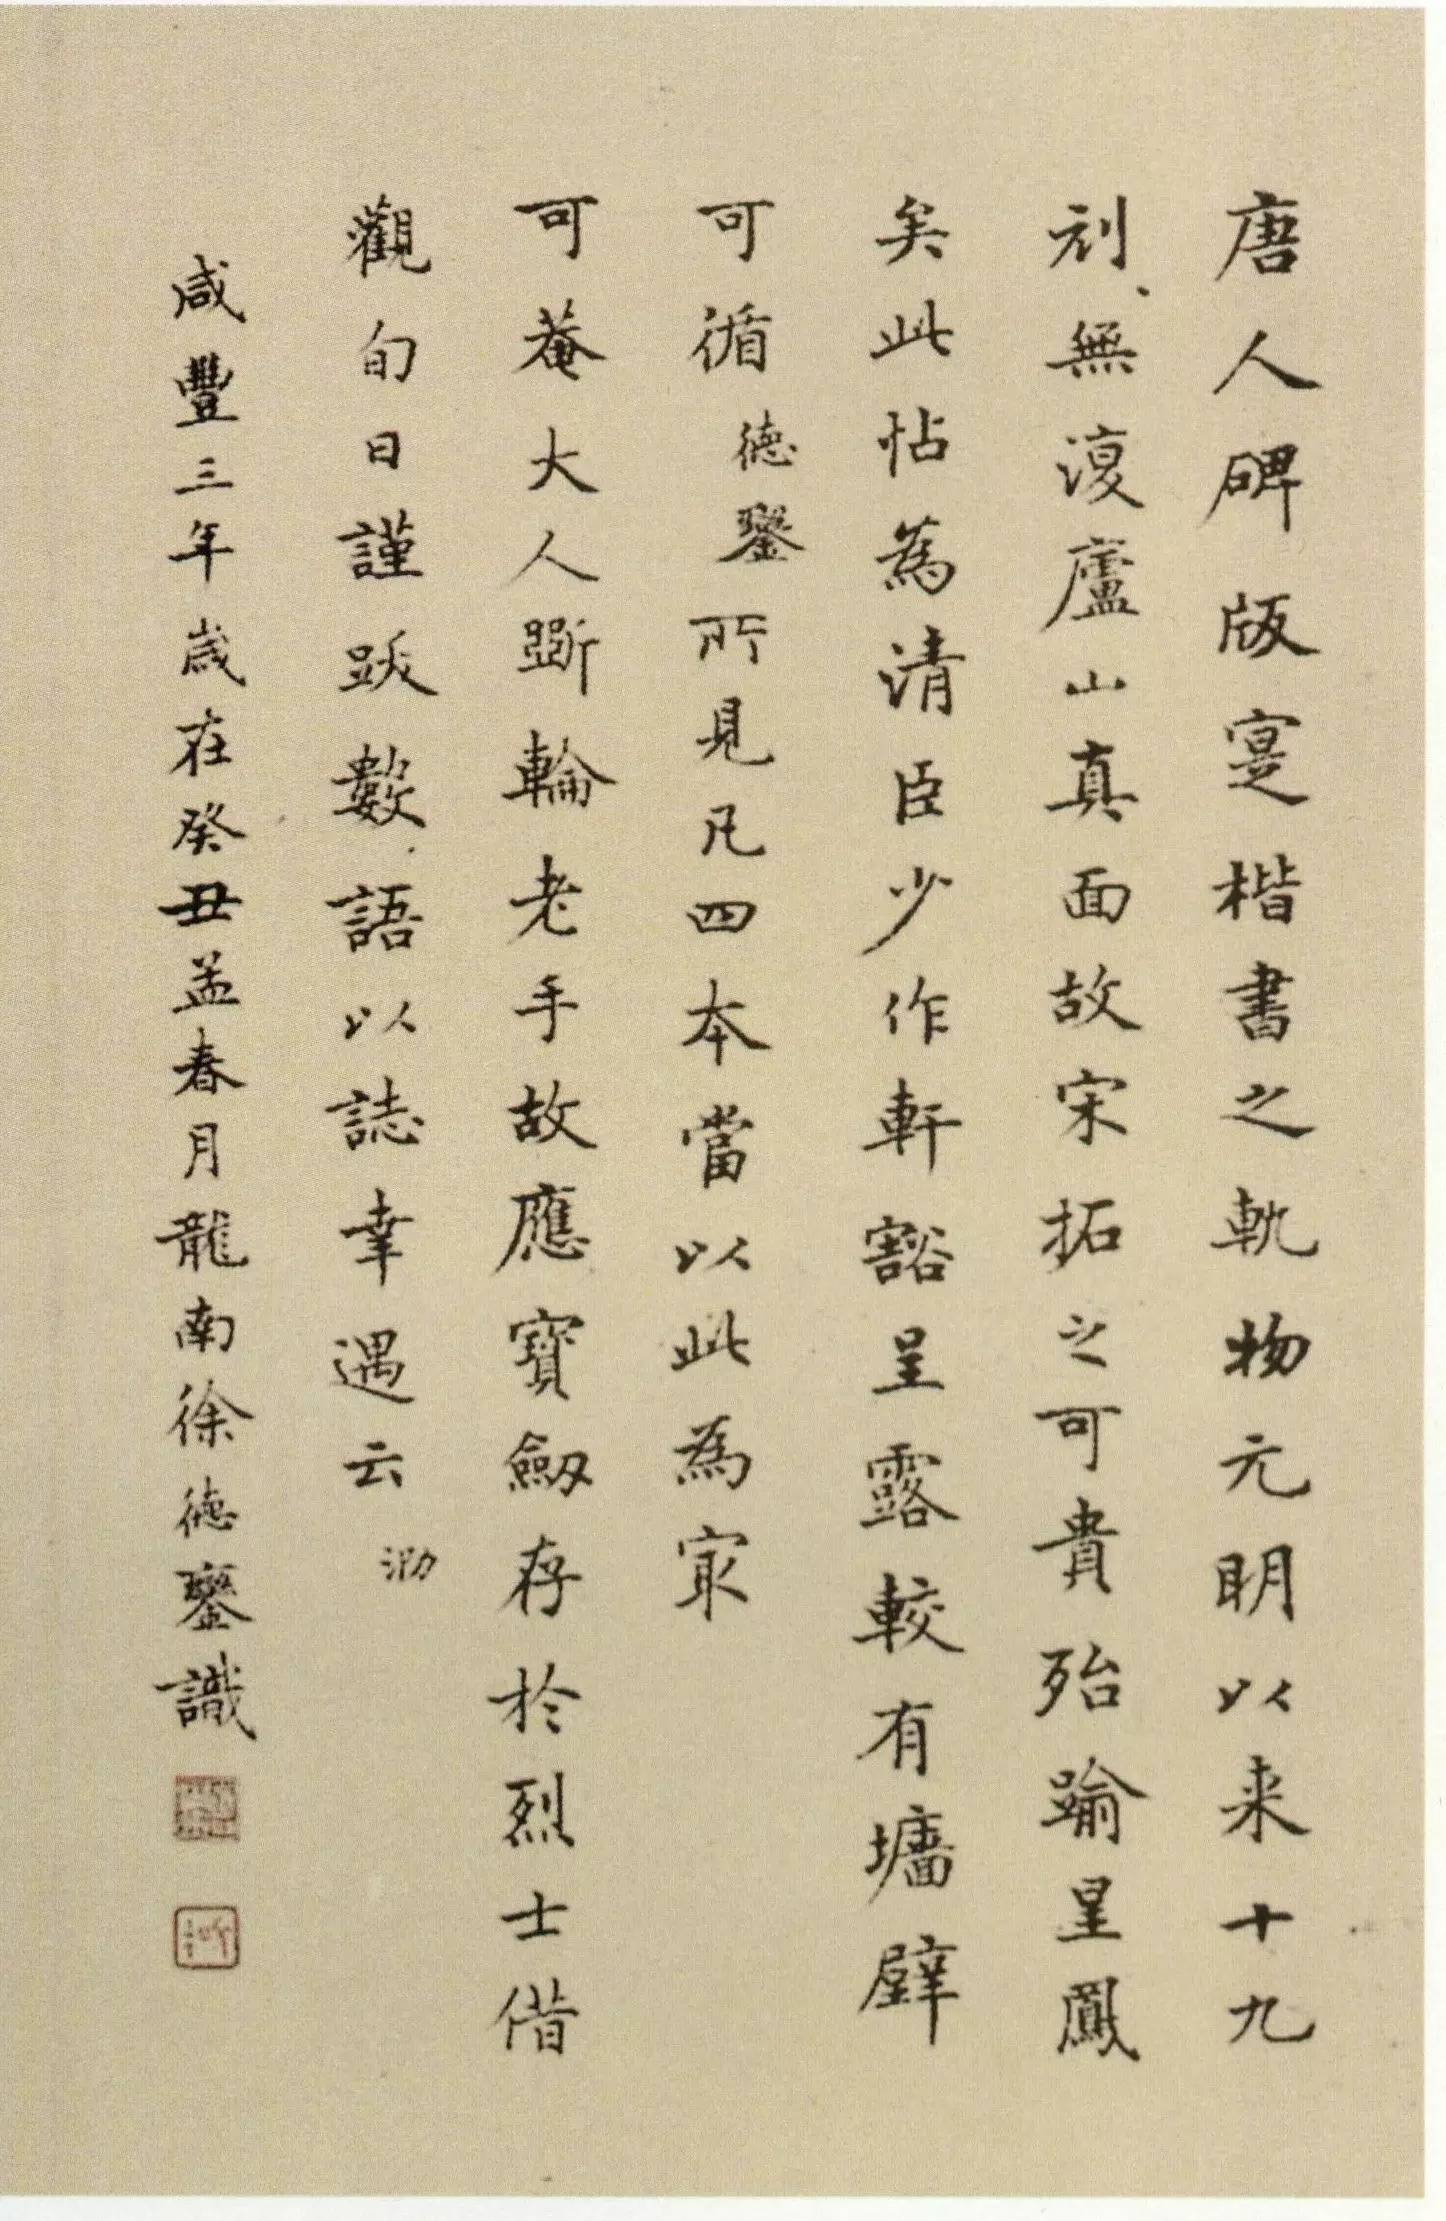 唐人碑版寔楷書之軌物元明以来十九
刓無復廬山真面故宋拓之可貴殆踰星鳳
矣此帖為清臣少作軒豁呈露較有墻壁
可循德鋆所見凡四本當以此為冣
可菴大人斲輪老手故應寶劒存於烈士借
觀旬日謹跋數語以誌幸遇云
泐
咸豐三年歲在癸丑孟春月龍南徐德鋆識